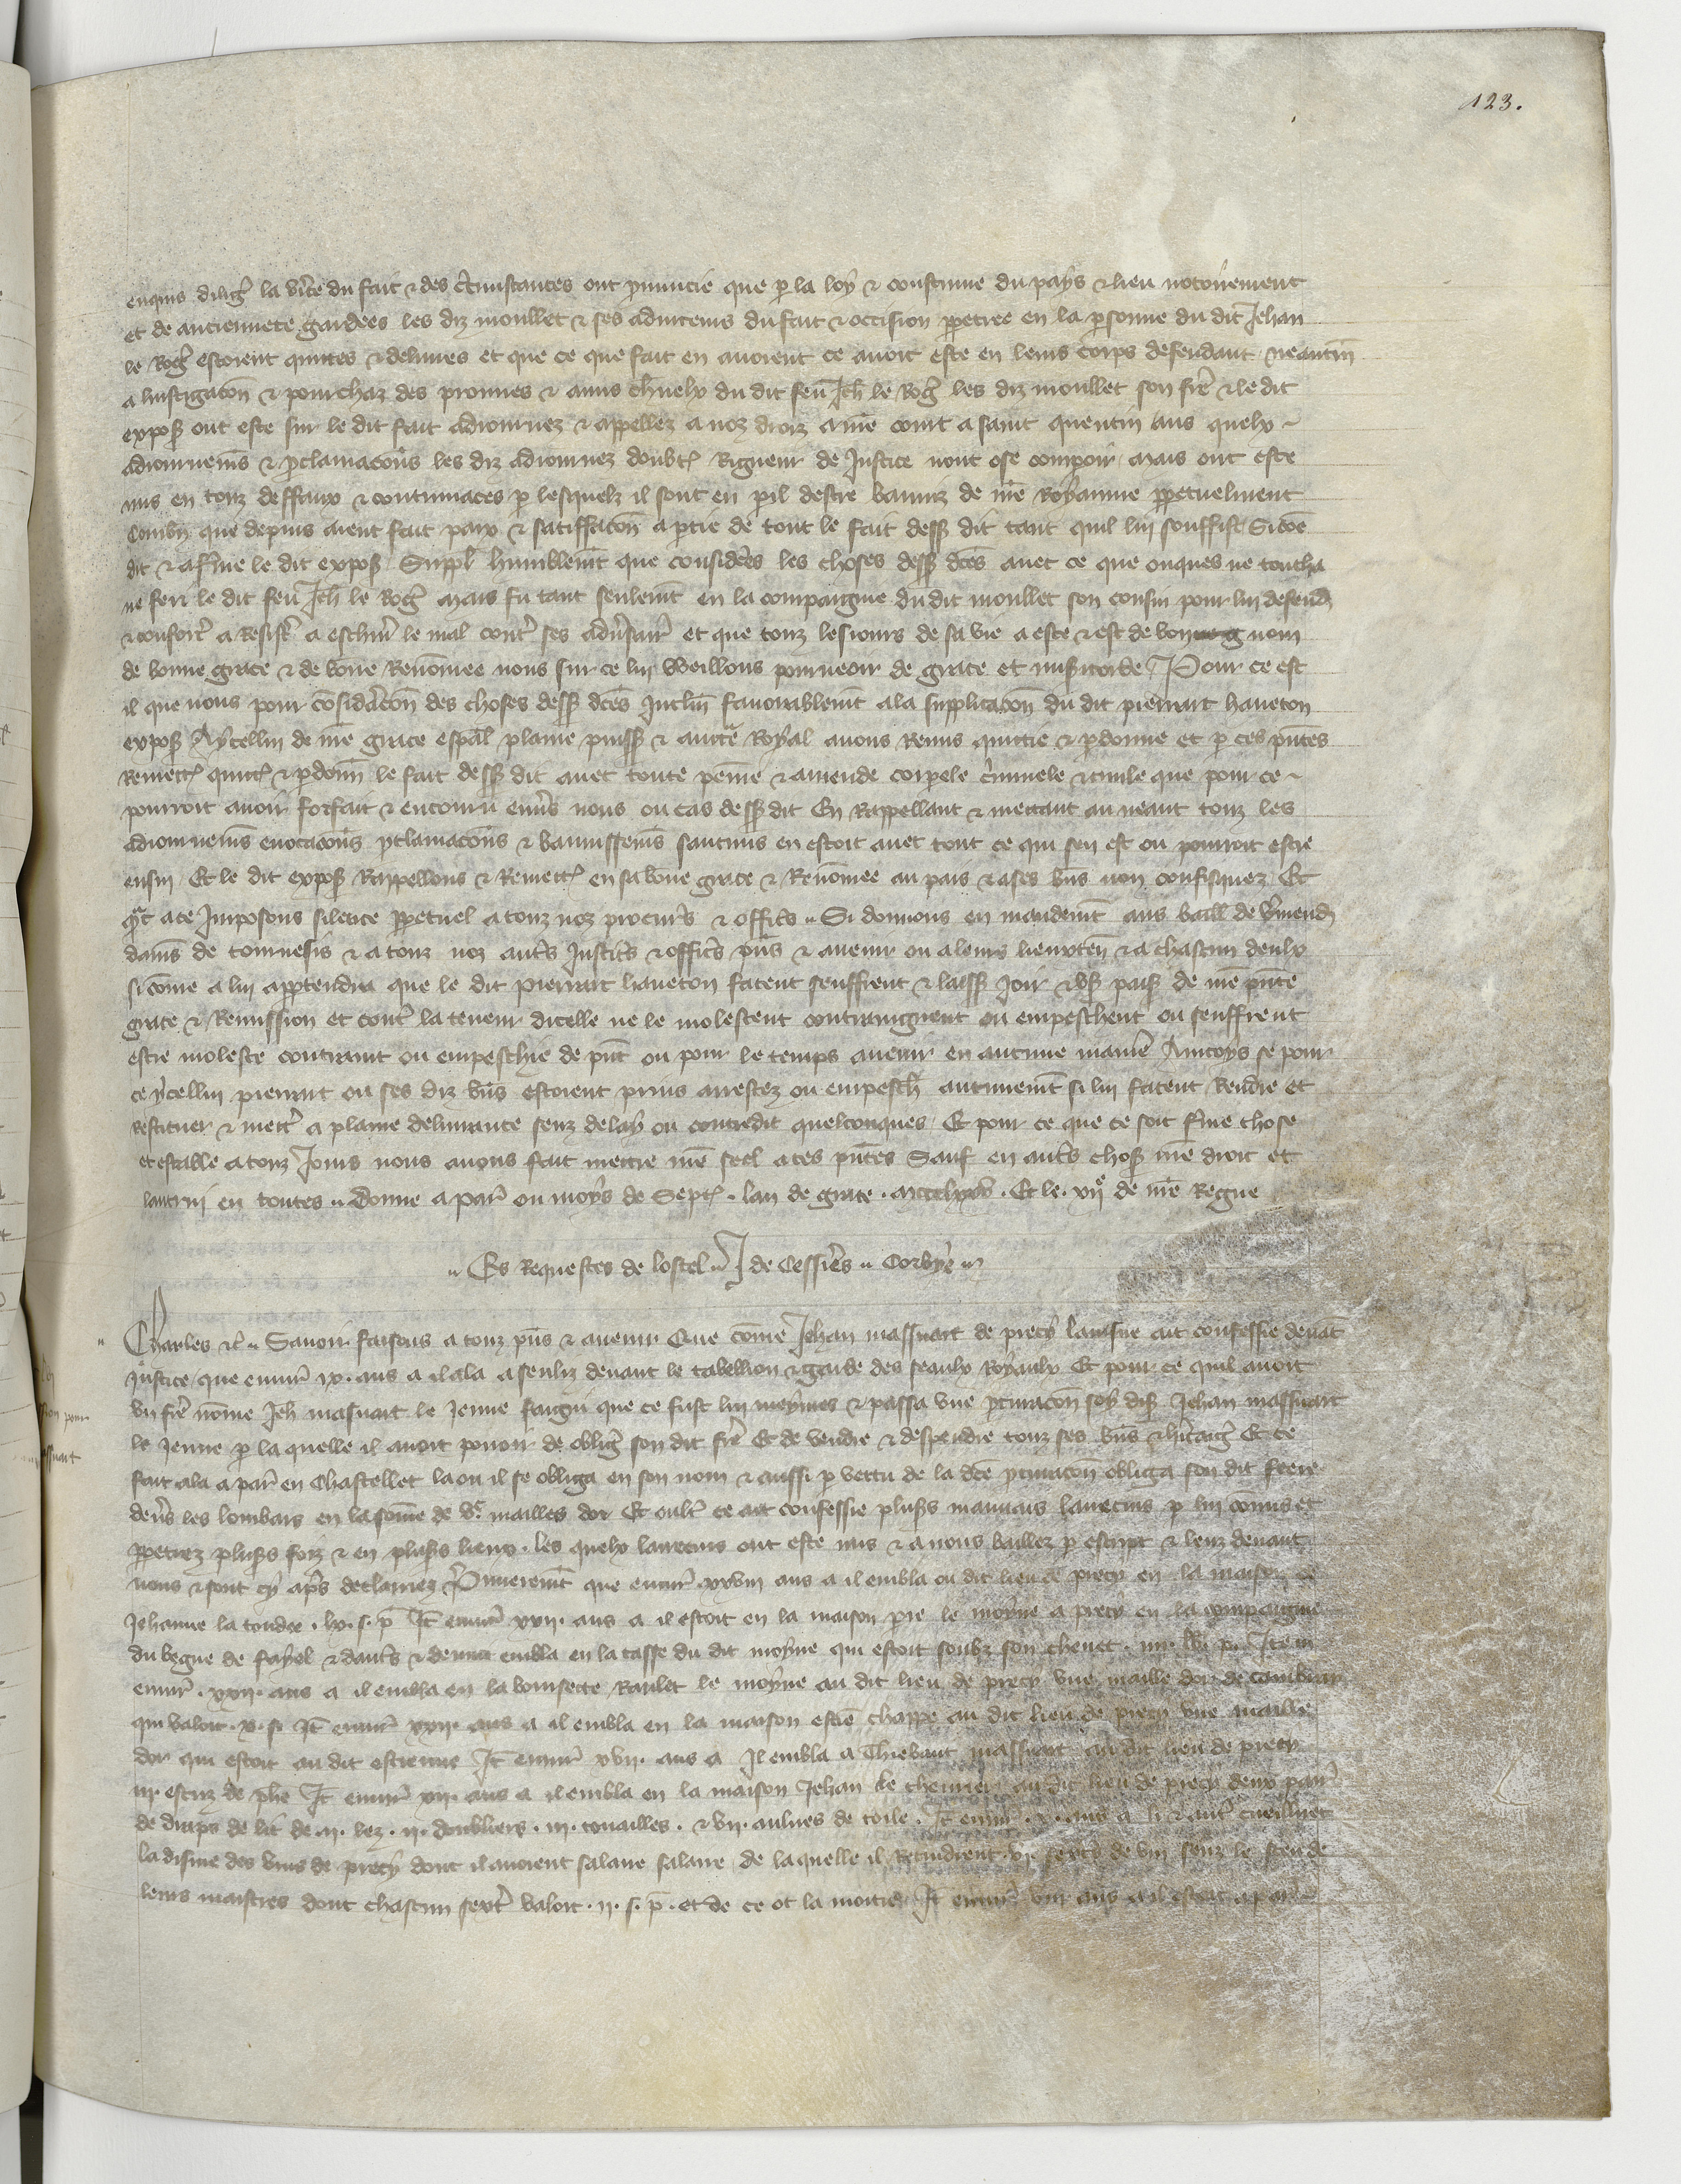 123.
enquis dilig̃ la v̾ite du fait & des c̾cunstances ont p̾nuncie que p la loy & coustume du pays & lieu notoirement
et de anciennete gardees les diz moullet & ses adiuteurs du fait & occision ppetree en la p̱sonne du dit Jehan
le Rog̾ estoient quittes & delivres et que ce que fait en avoient ce avoit este en leurs corps defendant neantm̃
a linstigac̃on & pourchaz des proimes & amis ch̾nelx du dit feu Jeh̃ le Rog̾ les diz moullet son fr̾e & le dit
expos̾ ont este sur le dit fait adiournez & appellez a noz droiz a nr̃e court a saint quentin aus quelx
adiournem̃s & p̾clamac̃ons les diz adiournez doubt̾ Rigueur de Justice nont ose compoir mais ont este
mis en touz deffaux & contumaces p lesquelx il sont en p̱il destre banniz de nr̃e Royaume ppetuelment
combn̄ que depuis aient fait paix & satiffac̃on a p̱tie de tout le fait dess̾ dit tant quil lui souffist Si c̃oe
dit & aferme le dit expos̾ Suppl̾ humblem̃t que consider̾es les choses dess̾ dc̃es avec ce que onques ne toucha
ne feri le dit feu Jeh̃ le Rog̾ mais fu tant seulem̃t en la compaignie du dit moullet son cousin pour lui defend̾
& confort̾ a Resist̾ a eschiu̾ le mal cont̾ ses adv̾sair̾ et que touz les jours de sa vie a este & est de bon nom
de bonne grace & de bõne Renõmee nous sur ce lui weillons pourveoir de grace et mis̾icorde Pour ce est
il que nous pour c̃osiderac̃on des choses dess̾ dc̃es Inclin̾ favorablem̃t a la supplicac̃on du dit pierrart haneton
expos̾ Aycellui de nr̃e grace esp̃al plaine puiss̾ & auct̾e Royal avons Remis quittie & p̱donne et p ces p̃ntes
Remett̾ quitt̾ & p̱donn̾ le fait dess̾ dit avec toute peine & amende corporele c̾minele & civile que pour ce
pourroit avoir forfait & encouru env̾s nous ou cas dess̾ dit En Rappellant & mettant au neant touz les
adiournem̃s evocac̃ons p̾clamac̃ons & bannissem̃s saucuns en estoit avec tout ce qui sen est ou pourroit estre
ensui Et le dit expos̾ Rappellons & Remett̾ en sa bõne grace & Renõmee au pais & a ses biẽs non confisquez Et
q̃nt a ce Imposons silence ppetuel a touz noz procur̾s & offic̾s Si donnons en mandem̃t aus baill̾ de v̾mend̾
damiẽs de tournesis & a touz noz aut̾s Justic̾s & offic̾s p̃ns & avenir ou a leurs lieuxten̾ & a chascun deulx
si cõme a lui app̱tendra que le dit Pierrart haneton facent seuffrent & laiss̾ joir & us̾ paisi̾ de nr̃e p̃nte
grace & Remission et cont̾ la teneur dicelle ne le molestent contraignent ou empeschent ou seuffrent
estre moleste contraint ou empeschie de p̃nt ou pour le temps avenir en aucune manier̾ Aincoys se pour
ce ycellui pierrart ou ses diz biẽs estoient prins arrestez ou empesch̾ aucunem̃t si lui facent Rendre et
Restituer & mett̾ a plaine delivrance senz delay ou contredit quelconques Et pour ce que ce soit fer̾me chose
et estable a touz Jours nous avons fait mettre nr̃e seel a ces p̃ntes Sauf en aut̾s chos̾ nr̃e droit et
lautrui en toutes Donne a par̾ ou moys de Sept̾ lan de grace mccclxxv Et le xii^e de nr̃e Regne
Es Requestes de lostel J de Cessier̾s Corbye
Charles &c̾ Savoir faisons a touz p̃ns & avenir Que cõme Jehan massuart de precy lainsne ait confessie devãt
Justice que envir̾ ix ans a il ala a senliz devant le tabellion & garde des seaulx Royaulx Et pour ce quil avoit
un fr̾e nõme Jeh̃ massuart le Jenne faigni que ce fust lui meymes & passa une p̾curac̃on soy dis̾ Jehan massuart
le Jenne p la quelle il avoit povoir de oblig̾ son dit fr̾e Et de vendre & despendre touz ses biẽs & h̾itaig̾ Et ce
fait ala a par̾ en Chastellet la ou il se obliga en son nom & aussi p vertu de la dc̃e p̾curac̃on obliga son dit frere
dev̾s les lombars en la sõme de v^c mailles dor Et oult̾ ce ait confessie plus̾s mauvais larrecins p lui cõmis et
ppetrez plus̾s foiz & en plus̾s lieux les quelx larrecins ont este mis & a nous baillez p escript & leuz devant
nous & sont cy ap̾s declairiez P̾mierem̃t que envir̾ xxviii ans a il embla ou dit lieu de precy en la maison de
Jehanne la tondee lx s p̃ It̃ envir̾ xxii ans a il estoit en la maison p̾re le moyne a precy en la compaignie
du begue de fayel & daut̾s & de nuit embla en la casse du dit moyne qui estoit soubz son chevet iiii lb̃ p̃ Item
envir̾ xxii ans a il embla en la boursette Raulet le moyne au dit lieu de precy une maille dor de cambray
qui valoit x s̾ It̃ envir̾ xxii ans a il embla en la maison estiẽ chappe au dit lieu de precy une maille
dor qui estoit au dit estienne It̃ envir̾ xvii ans a Il embla a Thiebaut massuart au dit lieu de precy
iii escuz de ph̾e It̃ envir̾ xii ans a il embla en la maison Jehan le chemier au dit lieu de precy deux pair̾
de draps de lit de ii lez ii doubliers iii touailles & vii aulnes de toile It̃ envir̾ x ans a li & aut̾ cueillirent
la disme des vins de precy dont il avoient salaire salaire de laquelle il Retindrent vi sext̾s de vin senz le sceu de
leurs maistres dont chascun sext̾ valoit ii s p̃ et de ce ot la moitie It̃ envir̾ viii ans a il estoit a par̾